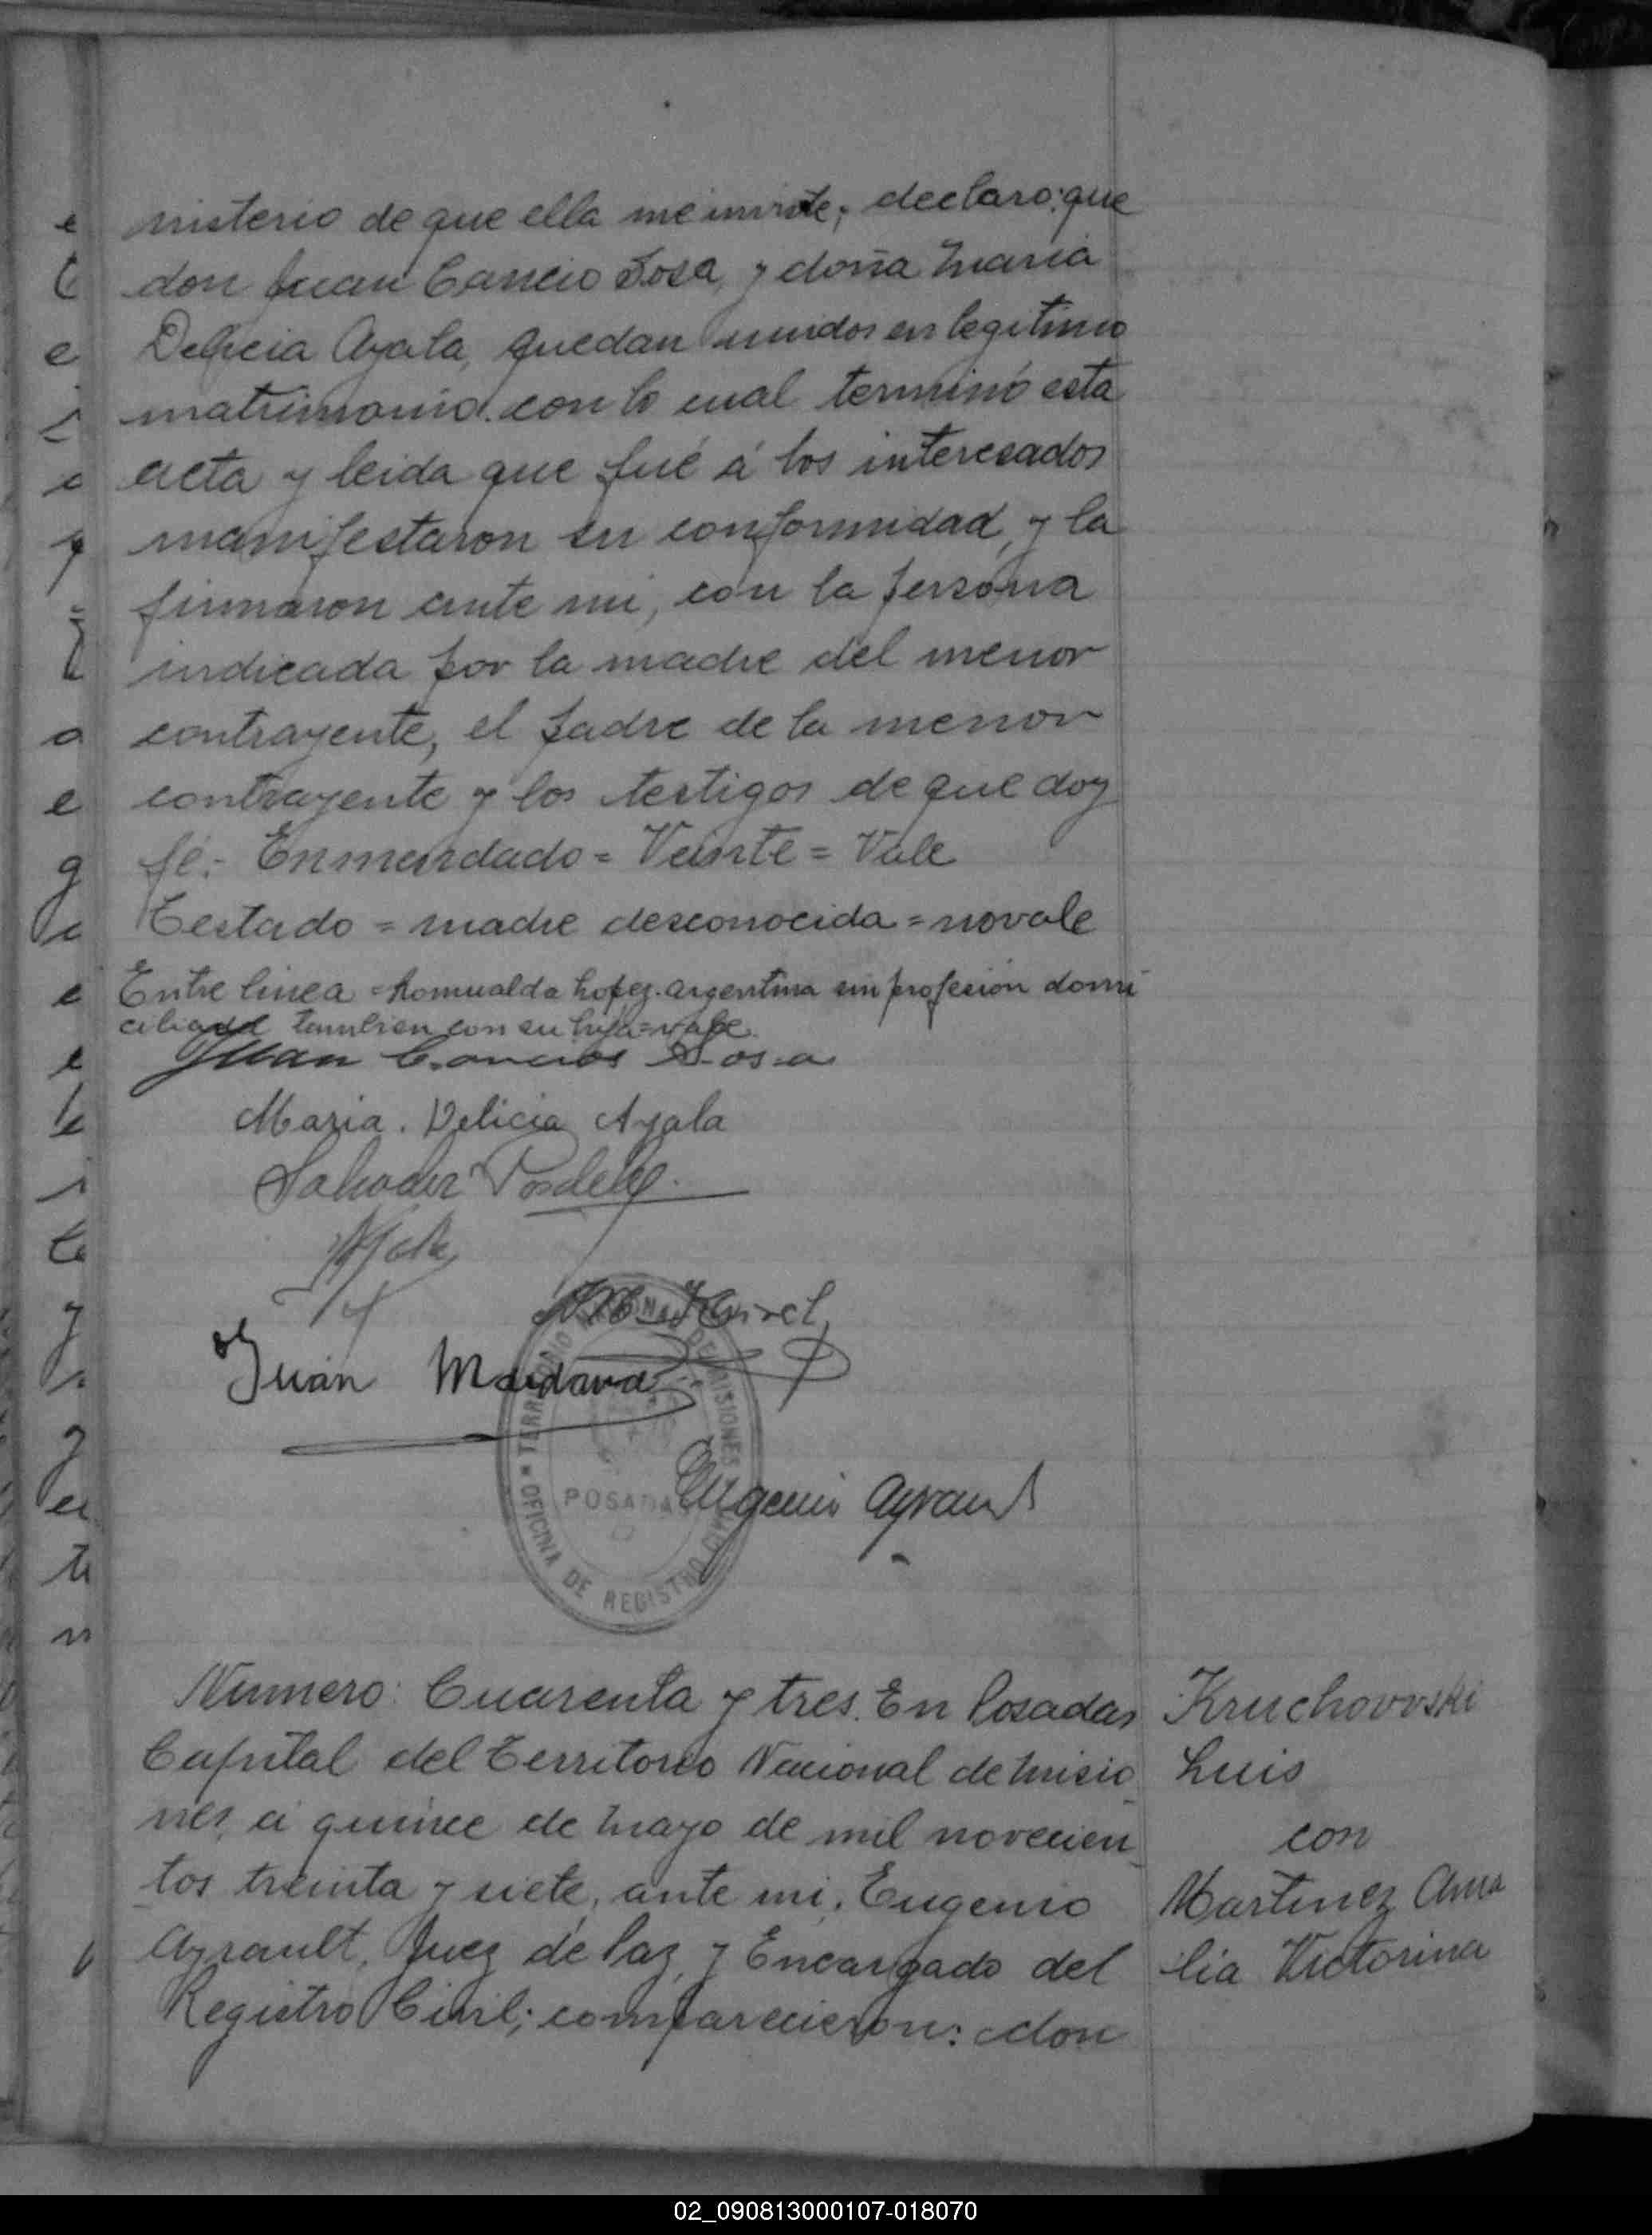 nisterio de que ella me inviste; declaro: que
don Juan Cancio Sosa, y doña Maria
Delicia Ayala, quedan unidos en legitimo
matrimonio. con lo cual terminó esta
acta y leida que fué á los interesados
manifestaron su conformidad, y la
firmaron ante mi, con la persona
indicada por la madre del menor
contrayente, el padre de la menor
contrayente y los testigos de que doy
fé.- Enmendado = Veinte = Vale
Testado = madre desconocida = no vale
Entre linea = Romualda Lopez. argentina sin profesion domi
ciliada tambien con su hija = vale.
Juan Cancios Sosa
Maria. Delicia Ayala
Salvador
Juan
TERRITORIO NACIONAL DE MISIONES
POSADAS
OFICINA DE REGISTRO CIVIL
Eugenio Ayrault
Numero: Cuarenta y tres. En Posadas
Capital del Territorio Nacional de Misio
nes, a quince de Mayo de mil novecien
tos treinta y siete, ante mi, Eugenio
Ayrault, Juez de Paz, y Encargado del
Registro Civil; comparecieron: don
Kruchowski
Luis
con
Martinez Ama
lia Victorina
02_090813000107-018070